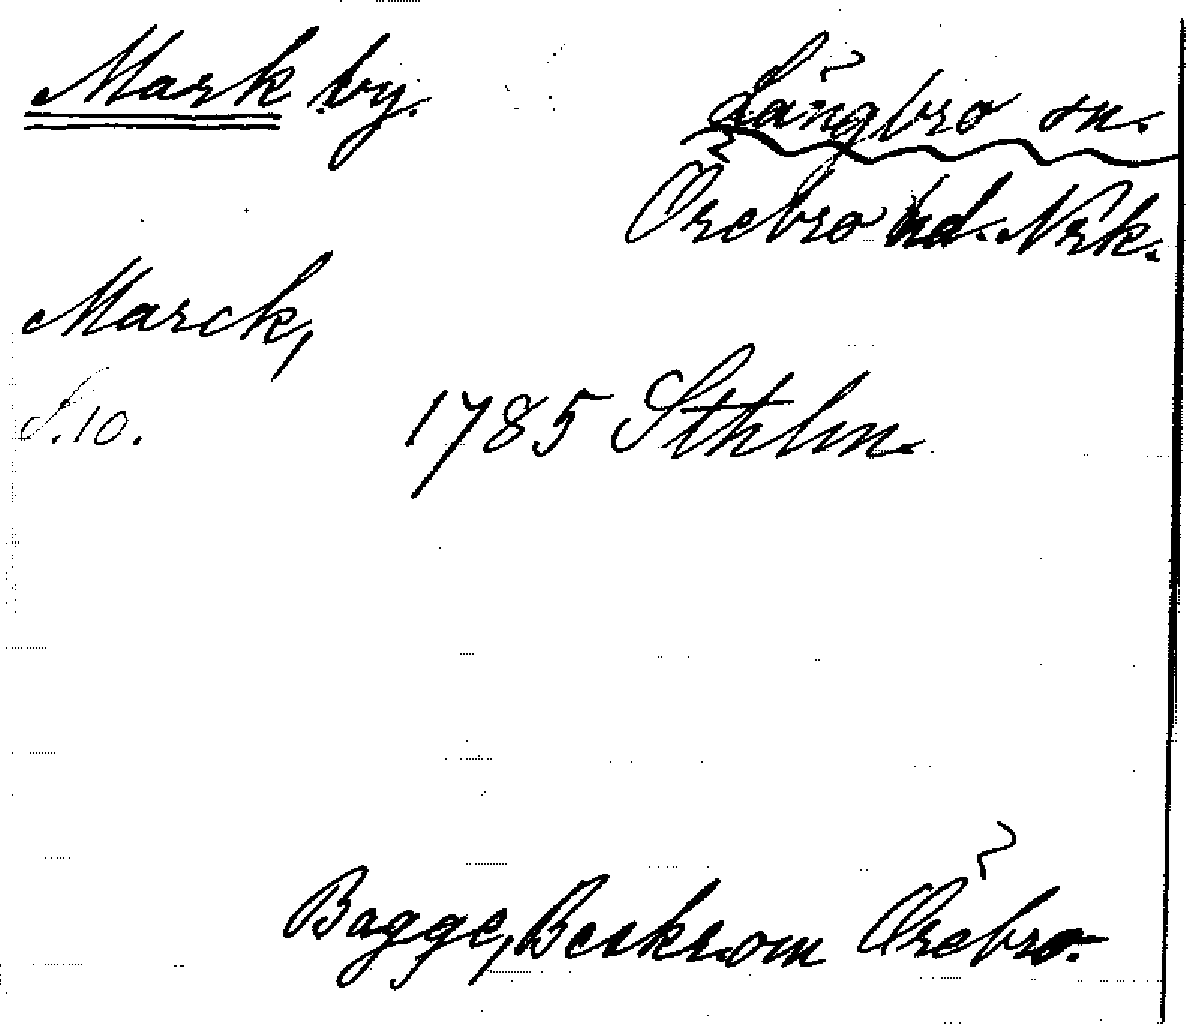 Mark by.
Långbro sn.
Örebro hd. Nrk.
Marck,
S. 10.
1785 Sthlm.
Bagge, Beskr. om Örebro.